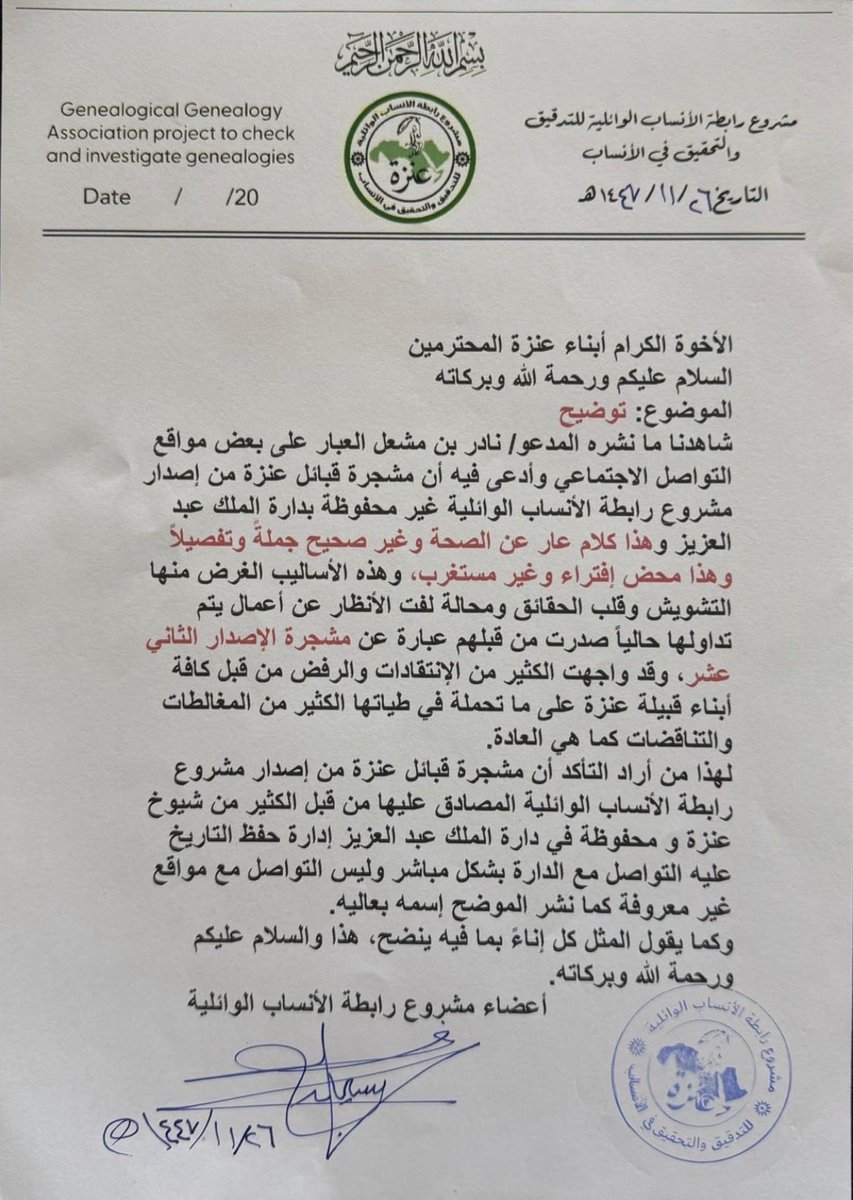 بسم الله الرحمن الرحيم
Genealogical Genealogy
Association project to check
and investigate genealogies
Date / /20
مشروع رابطة الأنساب الوائلية للتدقيق والتحقيق في الأنساب
عنزة
مشروع رابطة الأنساب الوائلية للتدقيق
والتحقيق في الأنساب
التاريخ ٢٦/ ١١/ ١٤٤٧هـ
الأخوة الكرام أبناء عنزة المحترمين
السلام عليكم ورحمة الله وبركاته
الموضوع: توضيح
شاهدنا ما نشره المدعو/ نادر بن مشعل العبار على بعض مواقع
التواصل الاجتماعي وأدعى فيه أن مشجرة قبائل عنزة من إصدار
مشروع رابطة الأنساب الوائلية غير محفوظة بدارة الملك عبد
العزيز وهذا كلام عار عن الصحة وغير صحيح جملةً وتفصيلاً
وهذا محض إفتراء وغير مستغرب، وهذه الأساليب الغرض منها
التشويش وقلب الحقائق ومحالة لفت الأنظار عن أعمال يتم
تداولها حالياً صدرت من قبلهم عبارة عن مشجرة الإصدار الثاني
عشر، وقد واجهت الكثير من الإنتقادات والرفض من قبل كافة
أبناء قبيلة عنزة على ما تحملة في طياتها الكثير من المغالطات
والتناقضات كما هي العادة.
لهذا من أراد التأكد أن مشجرة قبائل عنزة من إصدار مشروع
رابطة الأنساب الوائلية المصادق عليها من قبل الكثير من شيوخ
عنزة و محفوظة في دارة الملك عبد العزيز إدارة حفظ التاريخ
عليه التواصل مع الدارة بشكل مباشر وليس التواصل مع مواقع
غير معروفة كما نشر الموضح إسمه بعاليه.
وكما يقول المثل كل إناءً بما فيه ينضح، هذا والسلام عليكم
ورحمة الله وبركاته.
أعضاء مشروع رابطة الأنساب الوائلية
١٤٤٧/١١/٢٦هـ
مشروع رابطة الأنساب الوائلية
عنزة
للتدقيق والتحقيق في الأنساب